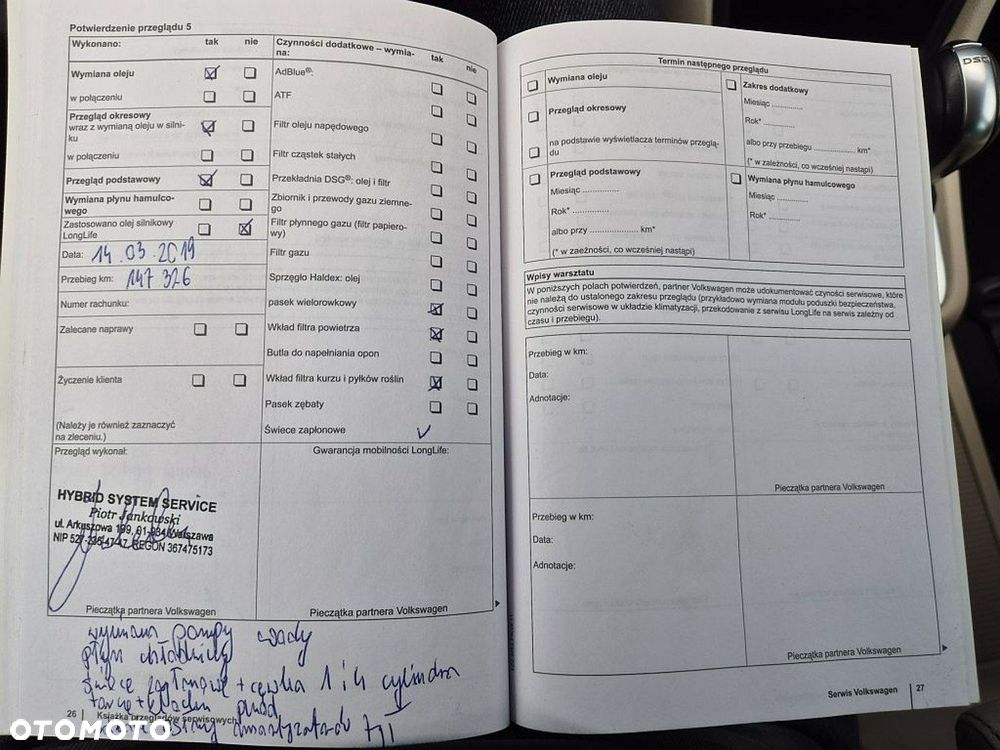 Potwierdzenie przeglądu 5
Wykonano: tak nie
Wymiana oleju
w połączeniu
Przegląd okresowy
wraz z wymianą oleju w silni-
ku
w połączeniu
Przegląd podstawowy
Wymiana płynu hamulco-
wego
Zastosowano olej silnikowy
LongLife
Data: 14.03.2019
Przebieg km: 147 326
Numer rachunku:
Zalecane naprawy
Życzenie klienta
(Należy je również zaznaczyć
na zleceniu.)
Przegląd wykonał:
HYBRID SYSTEM SERVICE
Piotr Jankowski
ul. Arkuszowa 199, 01-934 Warszawa
NIP 527-235-47-47, REGON 367475173
Pieczątka partnera Volkswagen
Czynności dodatkowe – wymia-
na: tak nie
AdBlue®:
ATF
Filtr oleju napędowego
Filtr cząstek stałych
Przekładnia DSG®: olej i filtr
Zbiornik i przewody gazu ziemne-
go
Filtr płynnego gazu (filtr papiero-
wy)
Filtr gazu
Sprzęgło Haldex: olej
pasek wielorowkowy
Wkład filtra powietrza
Butla do napełniania opon
Wkład filtra kurzu i pyłków roślin
Pasek zębaty
Świece zapłonowe
Gwarancja mobilności LongLife:
Pieczątka partnera Volkswagen
wymiana pompy wody
płyn chłodniczy
świece zapłonowe + cewka 1 i 4 cylindra
tarcze + klocki przód
amortyzatorów tył
26 Książka przeglądów serwisowych
OTOMOTO
Termin następnego przeglądu
Wymiana oleju
Przegląd okresowy
na podstawie wyświetlacza terminów przeglą-
du
Przegląd podstawowy
Miesiąc ..............
Rok* ..............
albo przy .................. km*
(* w zaeżności, co wcześniej nastąpi)
Zakres dodatkowy
Miesiąc ............
Rok* ............
albo przy przebiegu ................ km*
(* w zależności, co wcześniej nastąpi)
Wymiana płynu hamulcowego
Miesiąc ............
Rok* ............
Wpisy warsztatu
W poniższych polach potwierdzeń, partner Volkswagen może udokumentować czyności serwisowe, które
nie należą do ustalonego zakresu przeglądu (przykładowo wymiana modułu poduszki bezpieczeństwa,
czynności serwisowe w układzie klimatyzacji, przekodowanie z serwisu LongLife na serwis zależny od
czasu i przebiegu).
Przebieg w km:
Data:
Adnotacje:
Pieczątka partnera Volkswagen
Przebieg w km:
Data:
Adnotacje:
Pieczątka partnera Volkswagen
Serwis Volkswagen 27
DSG